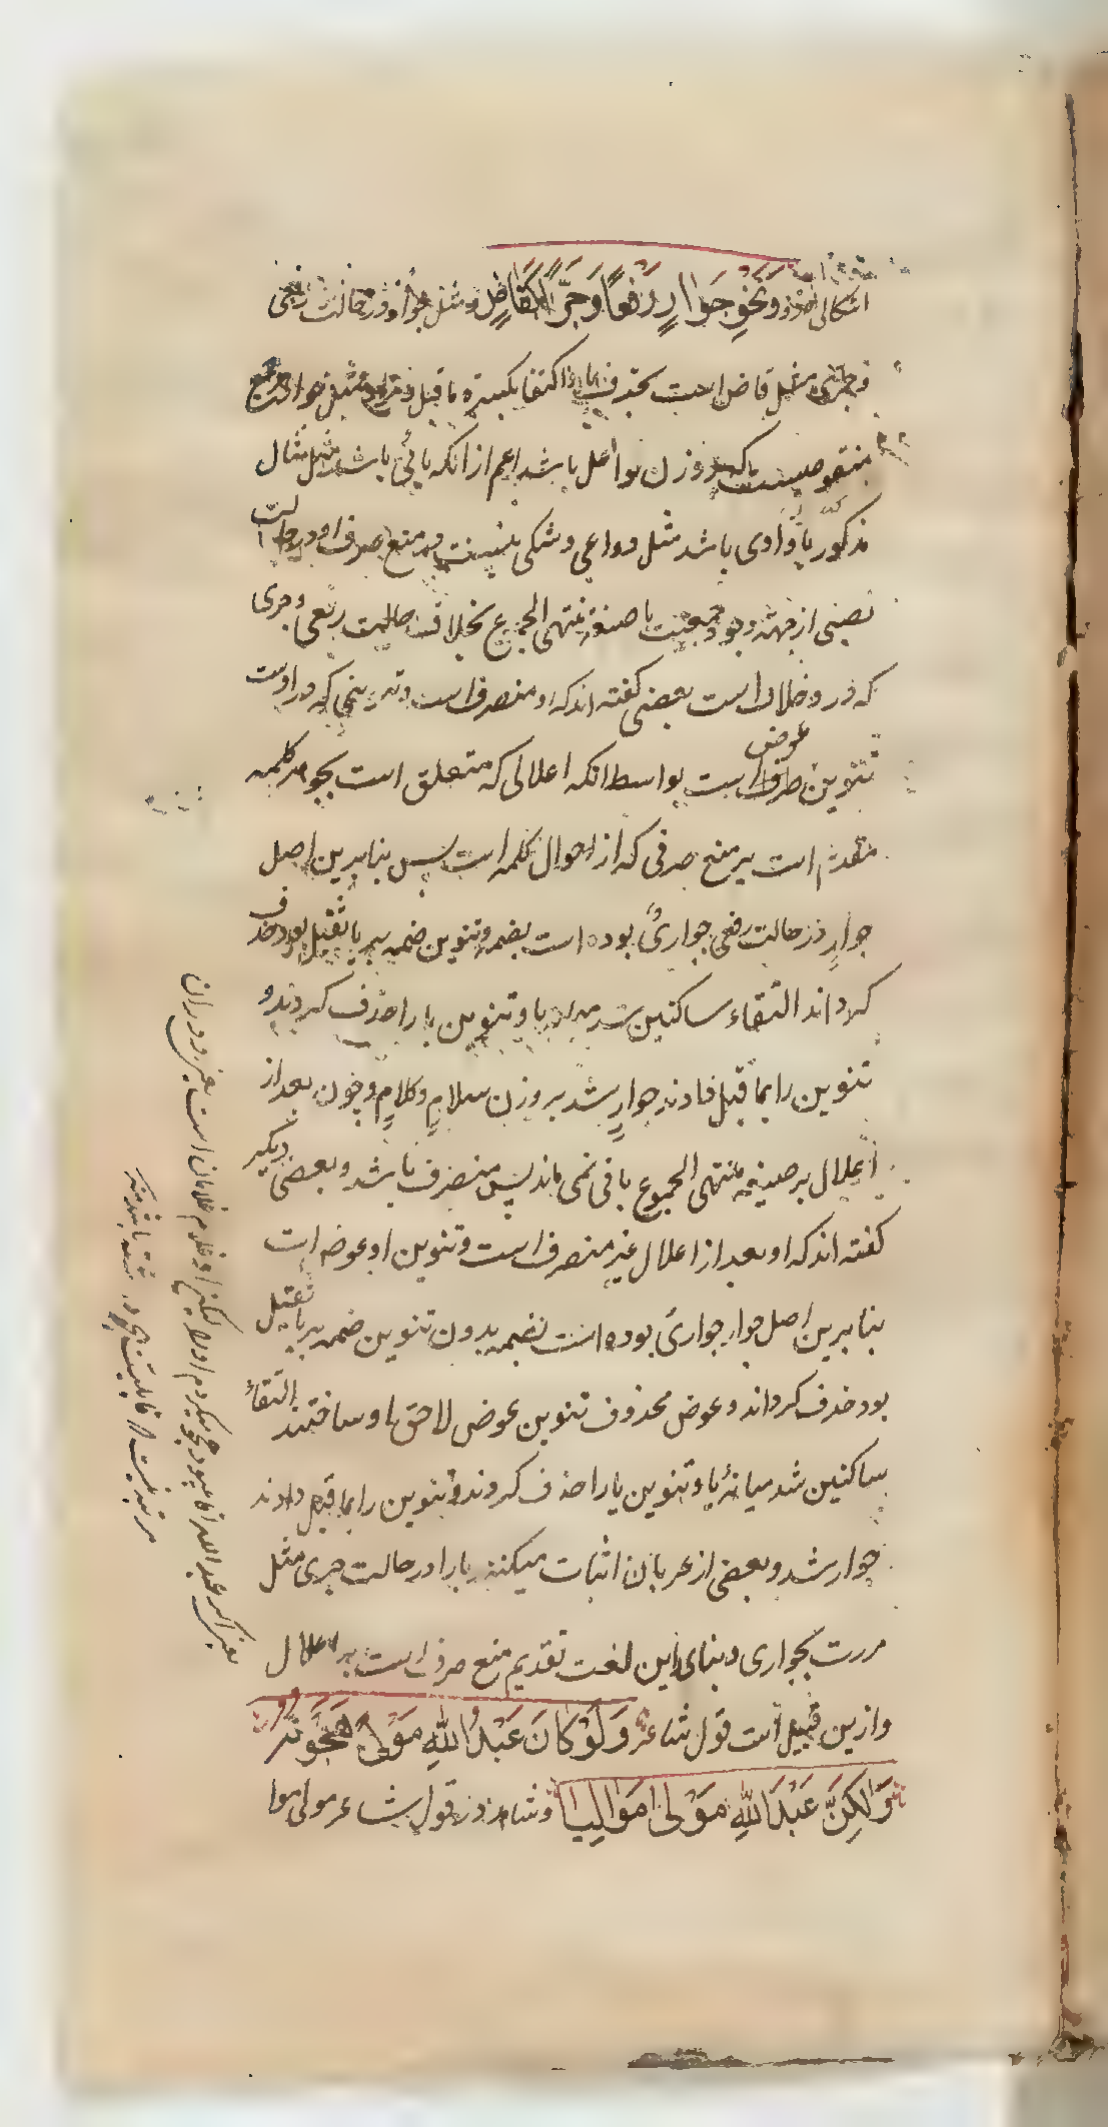 اشکالی وَنَحْوِ جَوَارٍ رَفْعاً وَجَرّاً كَقَاضٍ و مثل جوار در حالت رفعی
و جری مثل قاض است بحذف یا و اکتفا بکسره ما قبل و مراد بمثل جوار جمع
منقوصیست که بر وزن فواعل باشد اعم از آنکه یائی باشد مثل مثال
مذکور یا واوی باشد مثل دواعی و شکی نیست در منع صرف او در حالت
نصبی از جهة وجود جمعیت با صیغه منتهی الجموع بخلاف حالت رفعی و جری
که در و خلاف است بعضی گفته اند که او منصرف است و تنوینی که در اوست
تنوین صرف است بواسطه آنکه اعلالی که متعلق است بجوهر کلمه
عوض
مقدم است بر منع صرفی که از احوال کلمه است پس بنابرین اصل
جوارٍ در حالت رفعی جواریٌ بوده است بضمه و تنوین ضمه بر یا ثقیل بود حذف
کرده اند التقاء ساکنین شد میانه یا و تنوین یا را حذف کردند و
تنوین را بما قبل دادند جوارٍ شد بر وزن سلامٍ و کلامٍ و چون بعد از
اعلال بر صیغه منتهی الجموع باقی نمی ماند پس منصرف باشد و بعضی دیگر
گفته اند که او بعد از اعلال غیر منصرف است و تنوین او عوض است
بنا برین اصل جوار جواریُ بوده است بضمه بدون تنوین ضمه بر یا ثقیل
بود حذف کرده اند و عوض محذوف تنوین عوض لاحق او ساختند التقاءِ
ساکنین شد میانهٔ یا و تنوین یا را حذف کردند و تنوین را بما قبل دادند
جوار شد و بعضی از عربان اثبات میکنند یا را در حالت جری مثل
مررت بجواری و بنای این لغت تقدیم منع صرف است بر اعلال
و ازین قبیل است قول شاعر وَلَوْ كَانَ عَبْدُ اللهِ مَوْلىً هَجَوْتُهُ
وَلَكِنَّ عَبْدَ اللهِ مَوْلَى مَوَالِيَا و شاهد در قول شاعر مولی موا
یعنی اگر عبد الله آقا میبود هجو میکردم او را لیکن او غلام غلامان است یعنی در آن
مرتبه نیست که قابلیت هجو داشته باشد